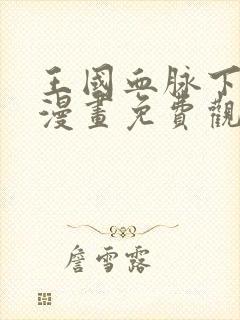 王國血脉下
漫畫免費觀
詹雪露